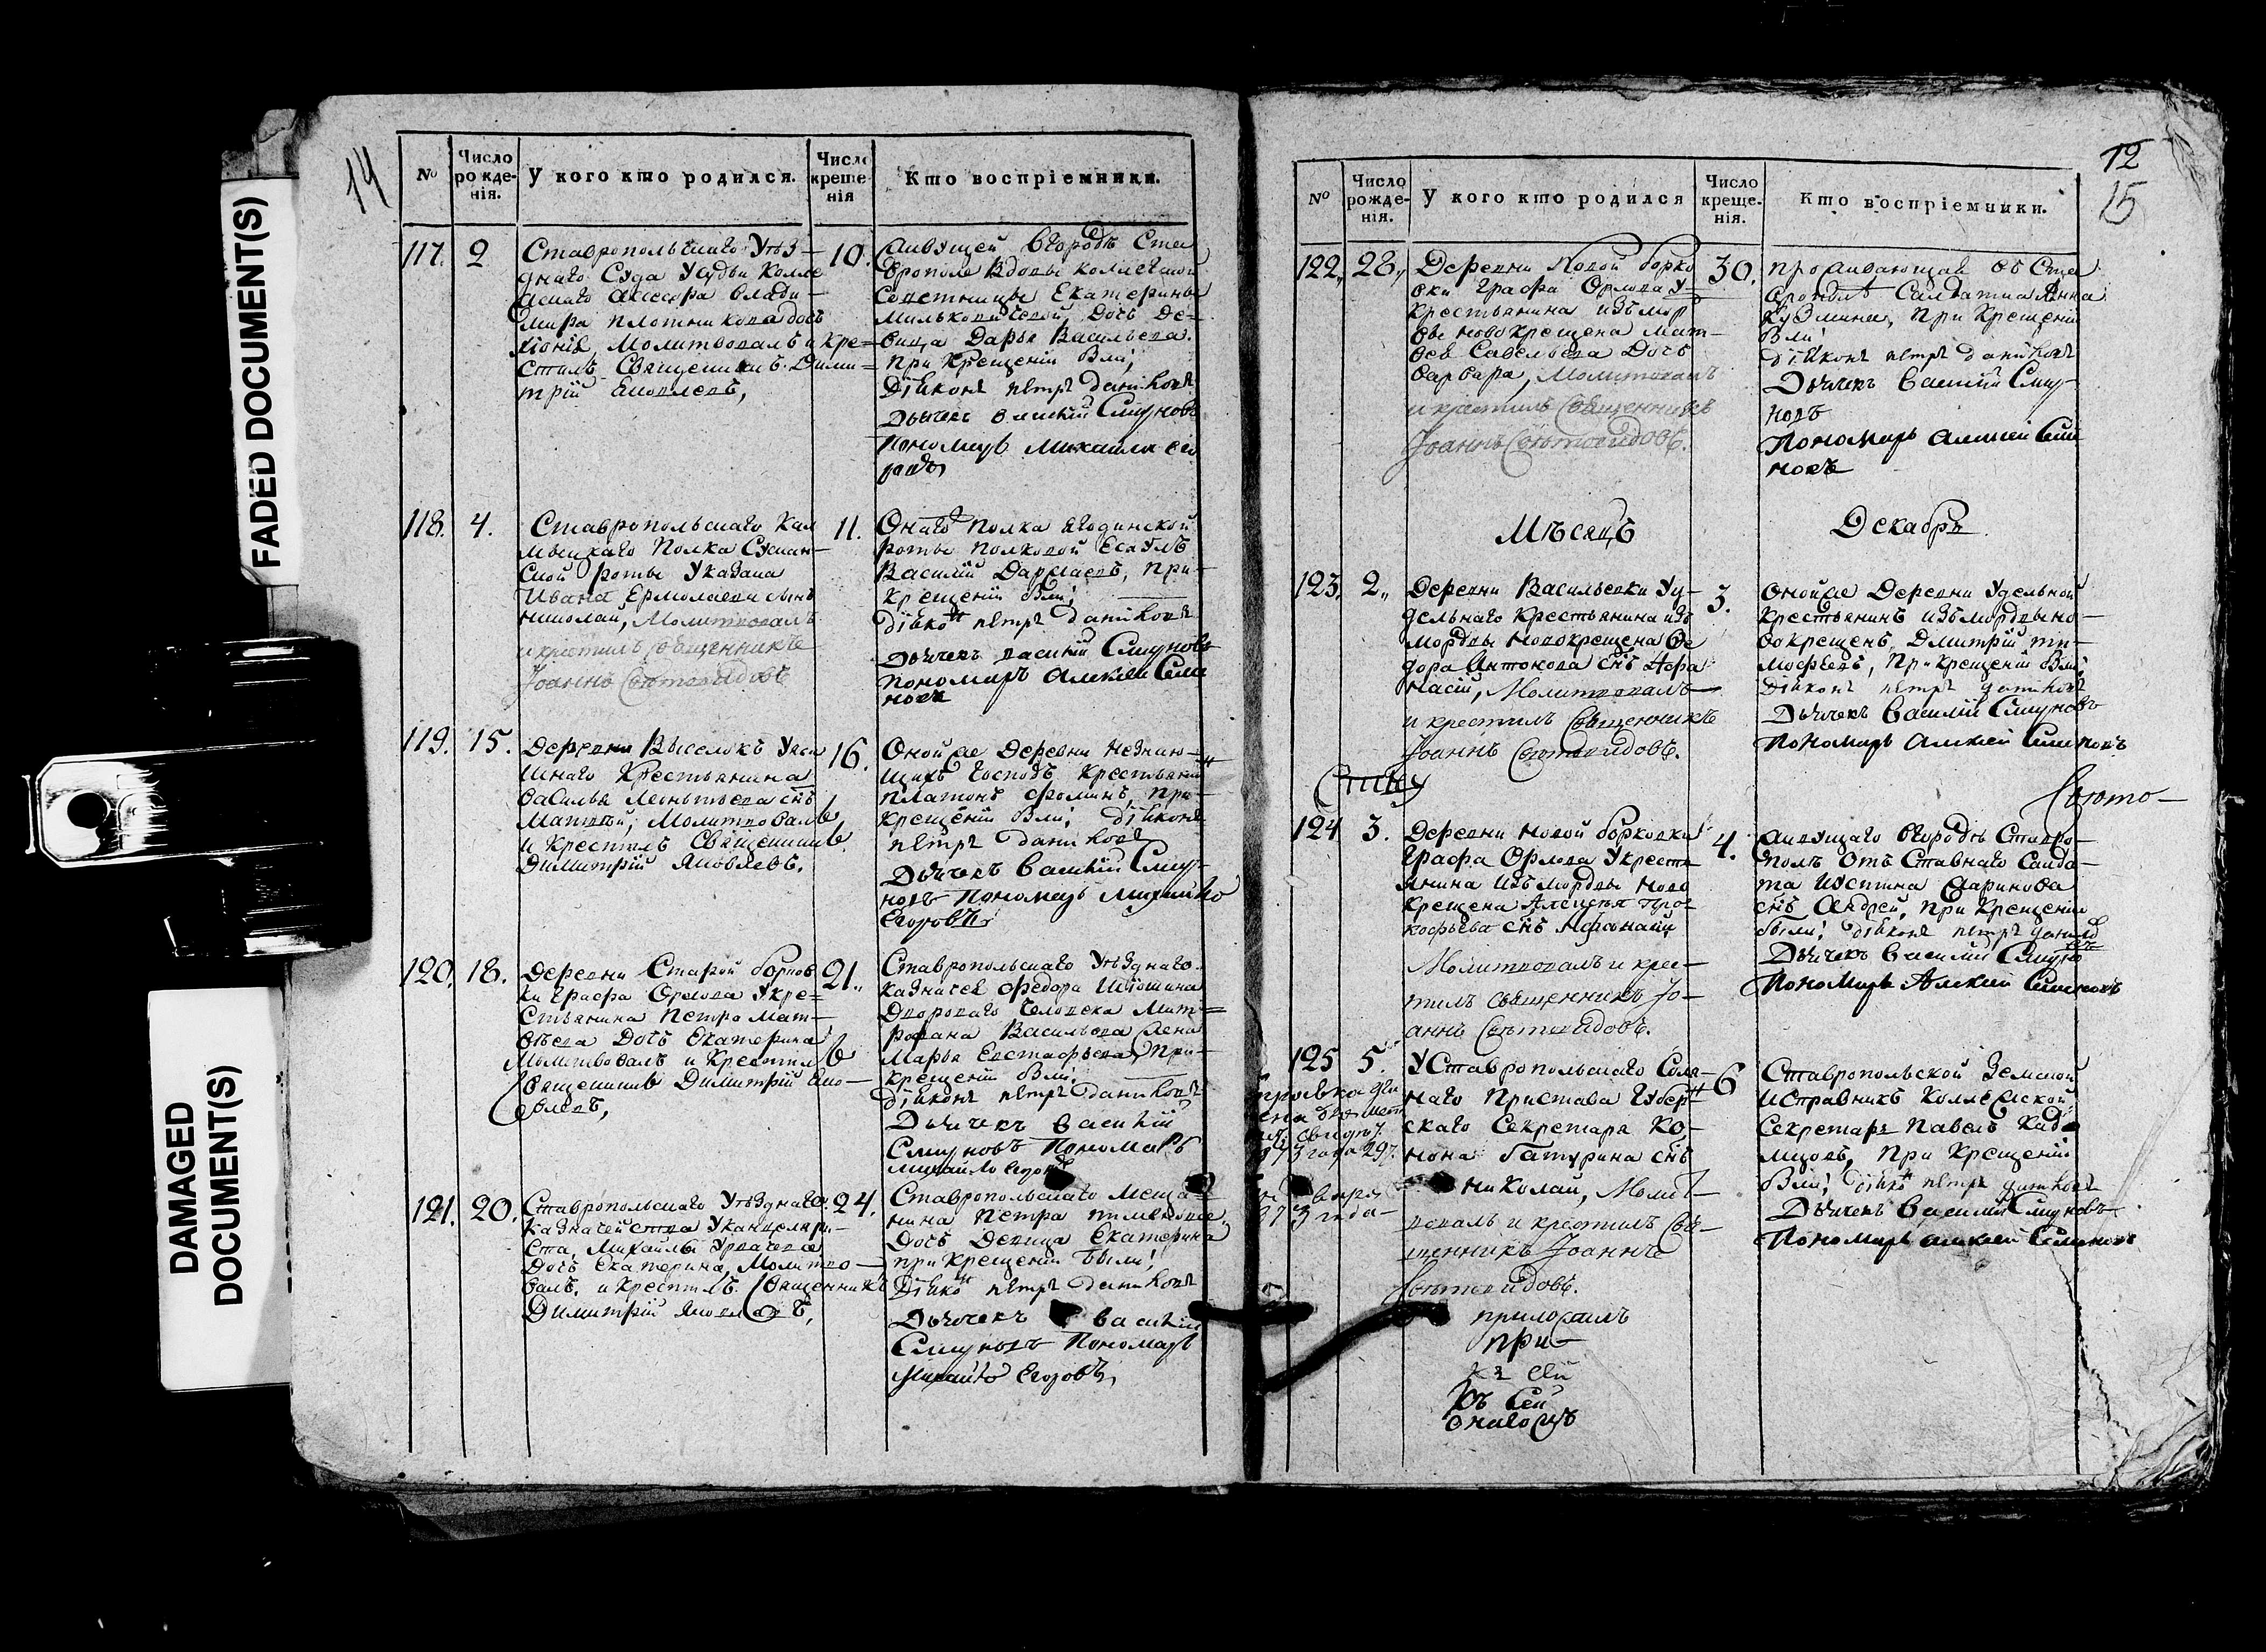 FADED DOCUMENT(S)
DAMAGED
DOCUMENT(S)
14
№
Число
рожде-
нія.
У кого кто родился.
Число
креще
нія
Кто воспріемники.
117. 2
Ставропольскаго Уѣз-
днаго Суда У судьи Колле
жскаго Ассесора Влади-
мира Плотникова дочь
Молитвовалъ и кре=
стилъ Священникъ Дими=
трій Яковлевъ,
10.
живущей въ городѣ Ста
врополе Вдовы Колежской
Советницы Екатерины
Мильковичевой, Дочь Де-
вица Дарья Васильева.
при Крещеніи были;
Діаконъ петръ
Дьячекъ василій Смирновъ
Пономарь Михаила его
ровъ
118. 4.
Ставропольскаго Кал
мыцкаго Полка Сускан-
ской роты У казака
Ивана Ермолаева сынъ
Николай, Молитвовалъ
и крестилъ священникъ
Іоаннъ Свѣтовидовъ
11.
Онаго Полка Ягодинской
роты полковой Есаулъ
Василій Дармаевъ, при-
крещеніи были;
Діаконъ петръ
Дьячекъ василій Смирновъ
Пономарь Алексей Сими
новъ
119. 15.
Деревни Выселокъ У
Крестьянина
Василья Леонтьева снъ
Матвей, Молитвовалъ
и Крестилъ Священникъ
Димитрій Яковлевъ.
16.
Оной же Деревни
Господъ Крестьянинъ
Платонъ Фоминъ, при-
крещеніи были; діаконъ
петръ
Дьячекъ василій Смир-
новъ Пономарь михайло
Егоровъ
120. 18.
Деревни Старой борков
ки Графа Орлова У кре=
стьянина Петра Мат-
вѣева Дочь Екатерина
Молитвовалъ и Крестилъ
Священникъ Димитрій Яко-
влевъ,
21.
Ставропольскаго Уѣзднаго
казначея Федора Шишкина
Двороваго Человека Мит=
рофана Васильева Жена
Марья Евстафьева, при-
крещеніи были;
діаконъ петръ
Дьячекъ василій
Смирновъ Пономарь
михайло егоровъ
121. 20.
Ставропольскаго Уѣзднаго
Казначейства У канцеляри-
ста, Михайлы
Дочь Екатерина, Молитво-
валъ. и Крестилъ Священникъ
Димитрій Яковлевъ,
24.
Ставропольскаго Меща
нина Петра
Дочь Девица Екатерина
при Крещеніи были;
Діаконъ петръ
Дьячекъ василій
Смирновъ Пономарь
михайло Егоровъ,
12
15
№
Число
рожде-
нія.
У кого кто родился
Число
креще-
нія.
Кто воспріемники.
122, 28,
Деревни Новой борко
вки Графа Орлова У-
крестьянина изъ мор
вы новокрещена Мат-
вея Савельева Дочь
варвара, Молитвовалъ
и крестилъ священникъ
Іоаннъ Свѣтовидовъ.
30.
проживающая въ Ста
врополѣ Салдатка Анна
Кузмина, при Крещеніи
были
діаконъ петръ
Дьячекъ василій Смир-
новъ
Пономарь алексей Сими
новъ
Мѣсяцъ
Декабрь
123. 2,,
Деревни Васильевки У у-
дельнаго Крестьянина изъ
мордвы новокрещена Фе
дора Антонова снъ Афа
насій, Молитвовалъ
и крестилъ Священникъ
Іоаннъ Свѣтовидовъ.
3.
Оной же Деревни Удельной
Крестьянинъ изъ мордвы но-
вокрещенъ, Дмитрій ти-
мофеевъ, при крещеніи были;
Діаконъ петръ
Дьячекъ василій Смирновъ
Пономарь алексей Симиновъ
Свѣто-
124 3.
Деревни новой борковки
Графа Орлова У крестья
янина изъ мордвы ново
крещена Алексея про
кофьева снъ Афанасій,
Молитвовалъ и крес-
тилъ священникъ Іо-
аннъ Свѣтовидовъ.
4.
живущаго въ городѣ Ставро-
полѣ отъ Ставнаго Салда-
та Иустина Жаринова
снъ Андрей, при Крещеніи
были; діаконъ петръ
Дьячекъ василій Смирновъ
Пономарь Алексей Симиновъ
125 5.
У Ставропольскаго Соля-
наго Пристава Губерн
скаго Секретаря Ко-
нона батурина снъ
николай, Молит-
вовалъ и крестилъ Свя-
щенникъ Іоаннъ
Свѣтовидовъ.
6
Ставропольской Земской
исправникъ Коллежской
Секретарь Павелъ
при Крещеніи
были; діаконъ петръ
Дьячекъ василій Смирновъ
Пономарь алексей Симиновъ
приложилъ
при-
къ сей